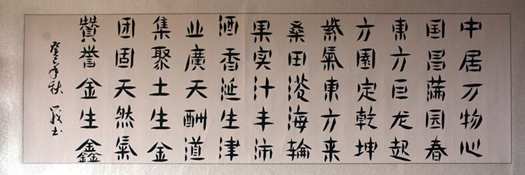 中居万物心
国昌满园春
东方巨龙起
方圆定乾坤
紫氣東方来
桑田沧海輪
果实汁丰沛
酒香涎生津
业廣天酬道
集聚土生金
团固天然氣
贊誉金生鑫
癸巳年秋